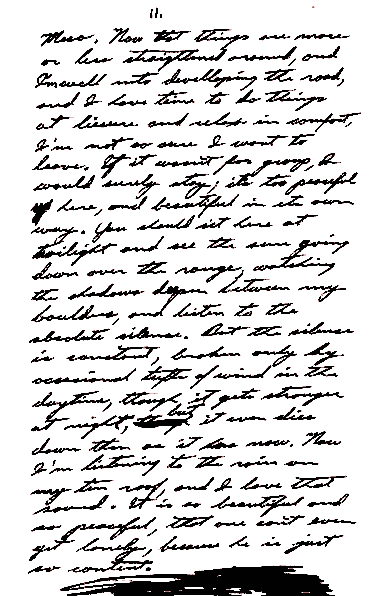 11.
Mesa. Now that things are more
or less straightened around, and
I'm well into developping the road,
and I have time to do things
at liesure and relax in comfort,
I'm not so sure I want to
leave. If it wasn't for group, I
would surely stay; it's too peaceful
up here, and beautiful in its own
way. You should sit here at
twilight and see the sun going
down over the range, watching
the shadows deepen between my
boulders, and listen to the
absolute silense. But the silense
is constant, broken only by
occasional tufts of wind in the
daytime, though, it gets stronger
at night, but it even dies
down then as it has now. Now
I'm listening to the rain on
my tin roof, and I love that
sound. It is so beautiful and
so peaceful, that one can't even
get lonely, because he is just
so content.